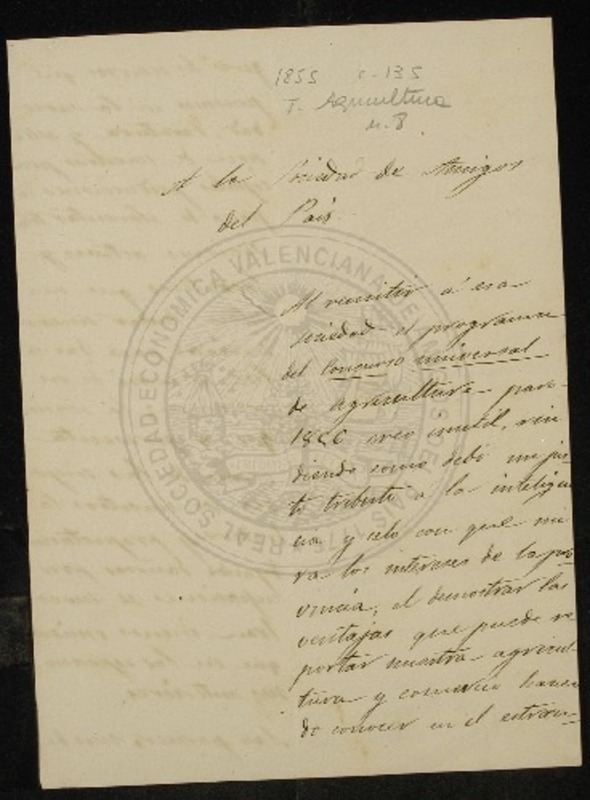 1855 C-135
T. Agricultura
n. 8
A la Sociedad de Amigos
del Pais
Al remitir á esa
sociedad el programa
del Concurso universal
de agricultura para
1856 creo inutil, rin
diendo como debo un jus
to tributo a la inteligen
cia y celo con que mi
ra los intereses de la pro
vincia, el demostrar las
ventajas que puede re
portar nuestra agricul
tura y comercio hacien
do conocer en el estran-
REAL SOCIEDAD ECONOMICA VALENCIANA DE AMIGOS DEL PAIS 1776